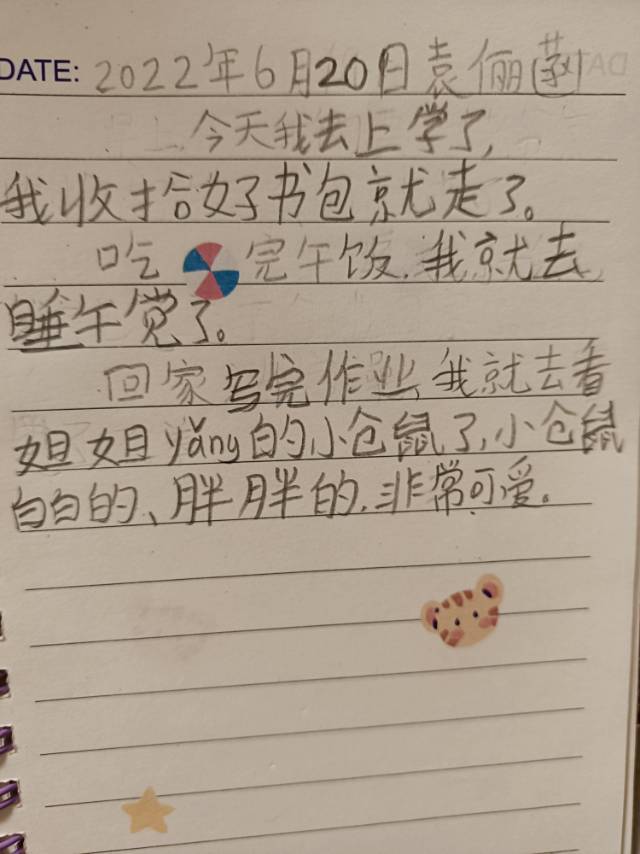 DATE: 2022年6月20日袁俪
今天我去上学了,
我收拾好书包就走了。
吃完午饭.我就去
睡午觉了。
回家写完作业我就去看
姐姐yǎng的小仓鼠了,小仓鼠
白白的、胖胖的.非常可爱。